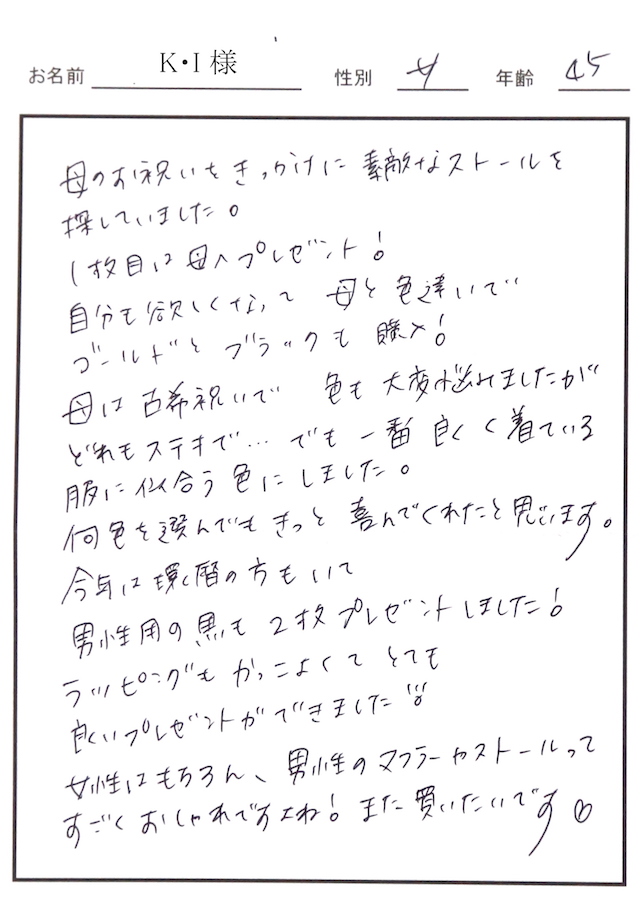 お名前 K・I 様 性別 女 年齢 45
母のお祝いをきっかけに 素敵なストールを
探していました。
1枚目は母へプレゼント!
自分も欲しくなって 母と色違いで
ゴールドとブラックも 購入!
母は古希祝いで 色も大変悩みましたが
どれもステキで… でも一番良くく着ている
服に似合う色にしました。
何色を選んでもきっと喜んでくれたと思います。
今年は還暦の方もいて
男性用の黒も2枚プレゼントしました!
ラッピングもかっこよくてとても
良いプレゼントができました
女性はもちろん、男性のマフラーやストールって
すごくおしゃれですよね! また買いたいです